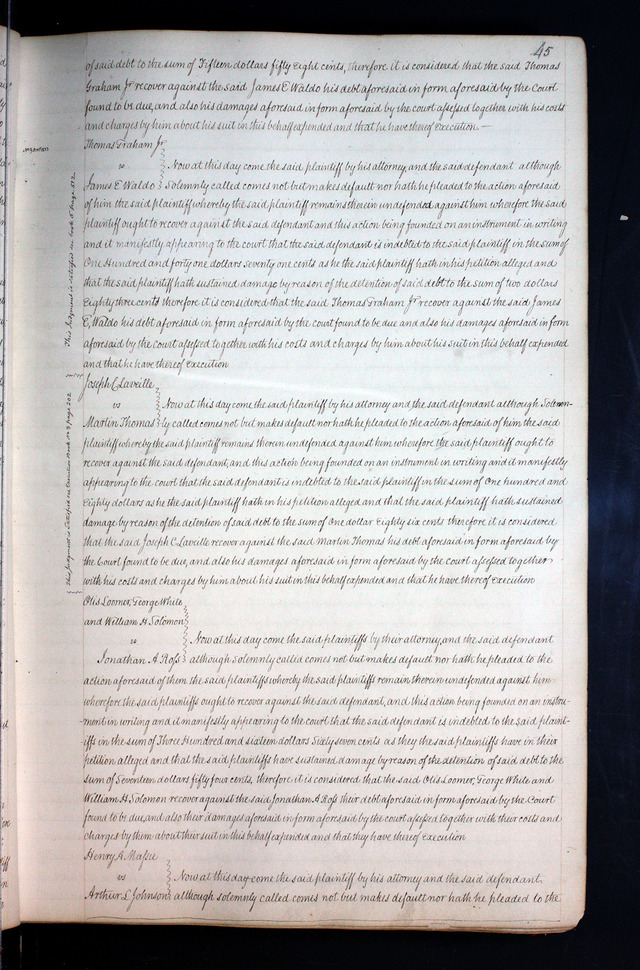 45
of said debt to the sum of Fifteen dollars fifty Eight cents, therefore it is considered that the said Thomas
Graham Jr recover against the said James E Waldo his debt aforesaid in form aforesaid by the Court
found to be due, and also his damages aforesaid in form aforesaid by the court assessed together with his costs
and charges by him about his suit in this behalf expended and that he have thereof Execution—
Thomas Graham Jr
vs Now at this day come the said plaintiff by his attorney, and the said defendant although
James E Waldo Solemnly called comes not but makes default nor hath he pleaded to the action aforesaid
of him the said plaintiff whereby the said plaintiff remains therein undefended against him wherefore the said
plaintiff ought to recover against the said defendant and this action being founded on an instrument in writing
and it manifestly appearing to the court that the said defendant is indebted to the said plaintiff in the sum of
One Hundred and forty one dollars Seventy one cents as he the said plaintiff hath in his petition alleged and
that the said plaintiff hath sustained damage by reason of the detention of said debt to the sum of two dollars
Eighty three cents therefore it is considered that the said Thomas Graham Jr recover against the said James
E, Waldo his debt aforesaid in form aforesaid by the court found to be due and also his damages aforesaid in form
aforesaid by the court assessed together with his costs and charges by him about his suit in this behalf expended
and that he have thereof execution
This Judgment is satisfied in Book page
Joseph C Laveille
vs Now at this day come the said plaintiff by his attorney and the said defendant although Solemn-
Martin Thomas ly called comes not but makes default nor hath he pleaded to the action aforesaid of him the said
plaintiff whereby the said plaintiff remains therein undefended against him wherefore the said plaintiff ought to
recover against the said defendant, and this action being founded on an instrument in writing and it manifestly
appearing to the court that the said defendant is indebted to the said plaintiff in the sum of One hundred and
Eighty dollars as he the said plaintiff hath in his petition alleged and that the said plaintiff hath sustained
damage by reason of the detention of said debt to the sum of One dollar Eighty six cents therefore it is considered
that the said Joseph C Laveille recover against the said Martin Thomas his debt aforesaid in form aforesaid by
the Court found to be due, and also his damages aforesaid in form aforesaid by the court assessed together
with his costs and charges by him about his suit in this behalf expended and that he have thereof Execution
This Judgment is satisfied page 202
Otis Loomer, George White
and William H. Solomon
vs Now at this day come the said plaintiffs by their attorney, and the said defendant
Jonathan A Ross although solemnly called comes not but makes default nor hath he pleaded to the
action aforesaid of them the said plaintiffs whereby the said plaintiffs remain therein undefended against him
wherefore the said plaintiffs ought to recover against the said defendant, and this action being founded on an instru-
ment in writing and it manifestly appearing to the court that the said defendant is indebted to the said plaint-
iffs in the sum of Three Hundred and sixteen dollars Sixty seven cents as they the said plaintiffs have in their
petition alleged and that the said plaintiffs have sustained damage by reason of the detention of said debt to the
sum of Seventeen dollars fifty four cents, therefore it is considered that the said Otis Loomer, George White and
William H. Solomon recover against the said Jonathan A Ross their debt aforesaid in form aforesaid by the Court
found to be due, and also their damages aforesaid in form aforesaid by the court assessed together with their costs and
charges by them about their suit in this behalf expended and that they have thereof execution
Henry A Massie
vs Now at this day come the said plaintiff by his attorney and the said defendant
Arthur L Johnson although solemnly called comes not but makes default nor hath he pleaded to the